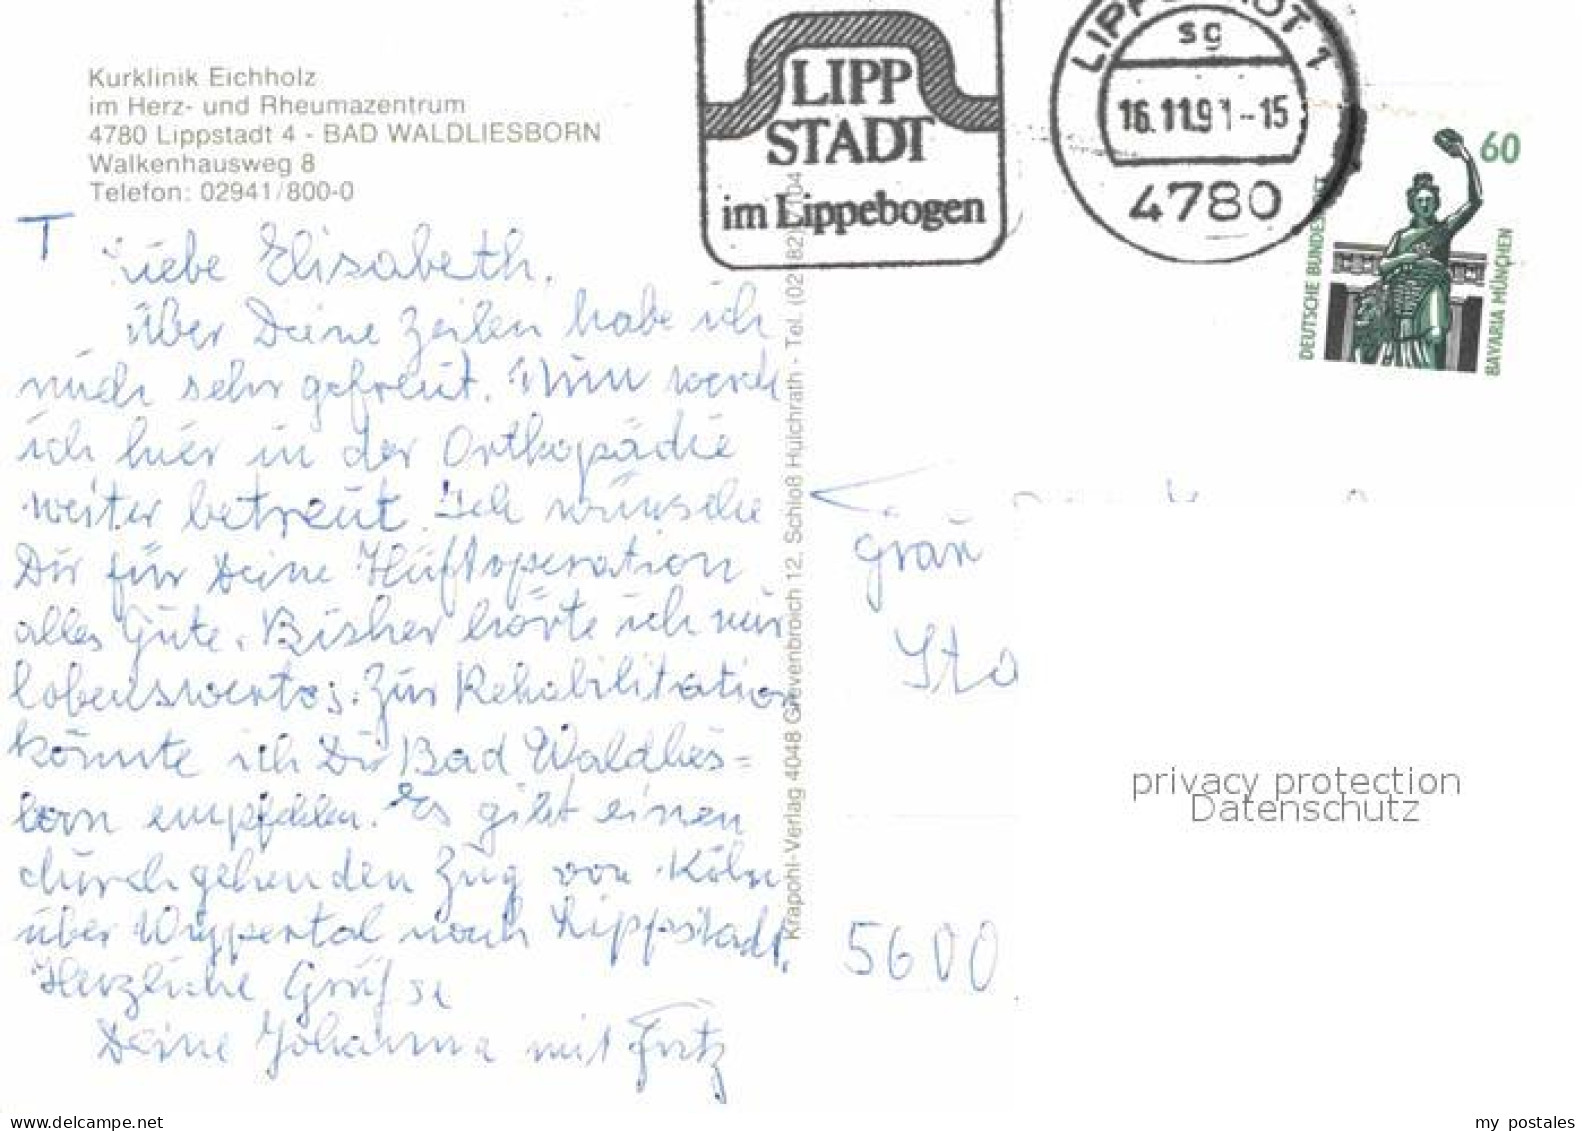 Kurklinik Eichholz
im Herz- und Rheumazentrum
4780 Lippstadt 4 - BAD WALDLIESBORN
Walkenhausweg 8
Telefon: 02941/800-0
LIPP
STADT
im Lippebogen
sg
16.11.91-15
4780
60
DEUTSCHE
BAVARIA MÜNCHEN
T
Liebe Elisabeth,
über Deine Zeilen habe ich
mich sehr gefreut. Nun werde
ich hier in der Orthopädie
weiter betreut. Ich wünsche
Dir für Deine Hüftoperation
alles Gute. Bisher hörte ich nur
lobenswertes. Zur Rehabilitation
könnte ich Dir Bad Waldlies=
born empfehlen. Es gibt einen
durchgehenden Zug von Köln
über Wuppertal nach Lippstadt.
Herzliche Grüße
Deine Johanna mit Fritz
Krapohl-Verlag 4048 Grevenbroich 12, Schloß Hülchrath - Tel.
Sta
5600
privacy protection
Datenschutz
delcampe.net
my postales